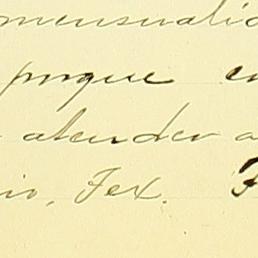 mensualid
porque en
atender a
nio, Tex.